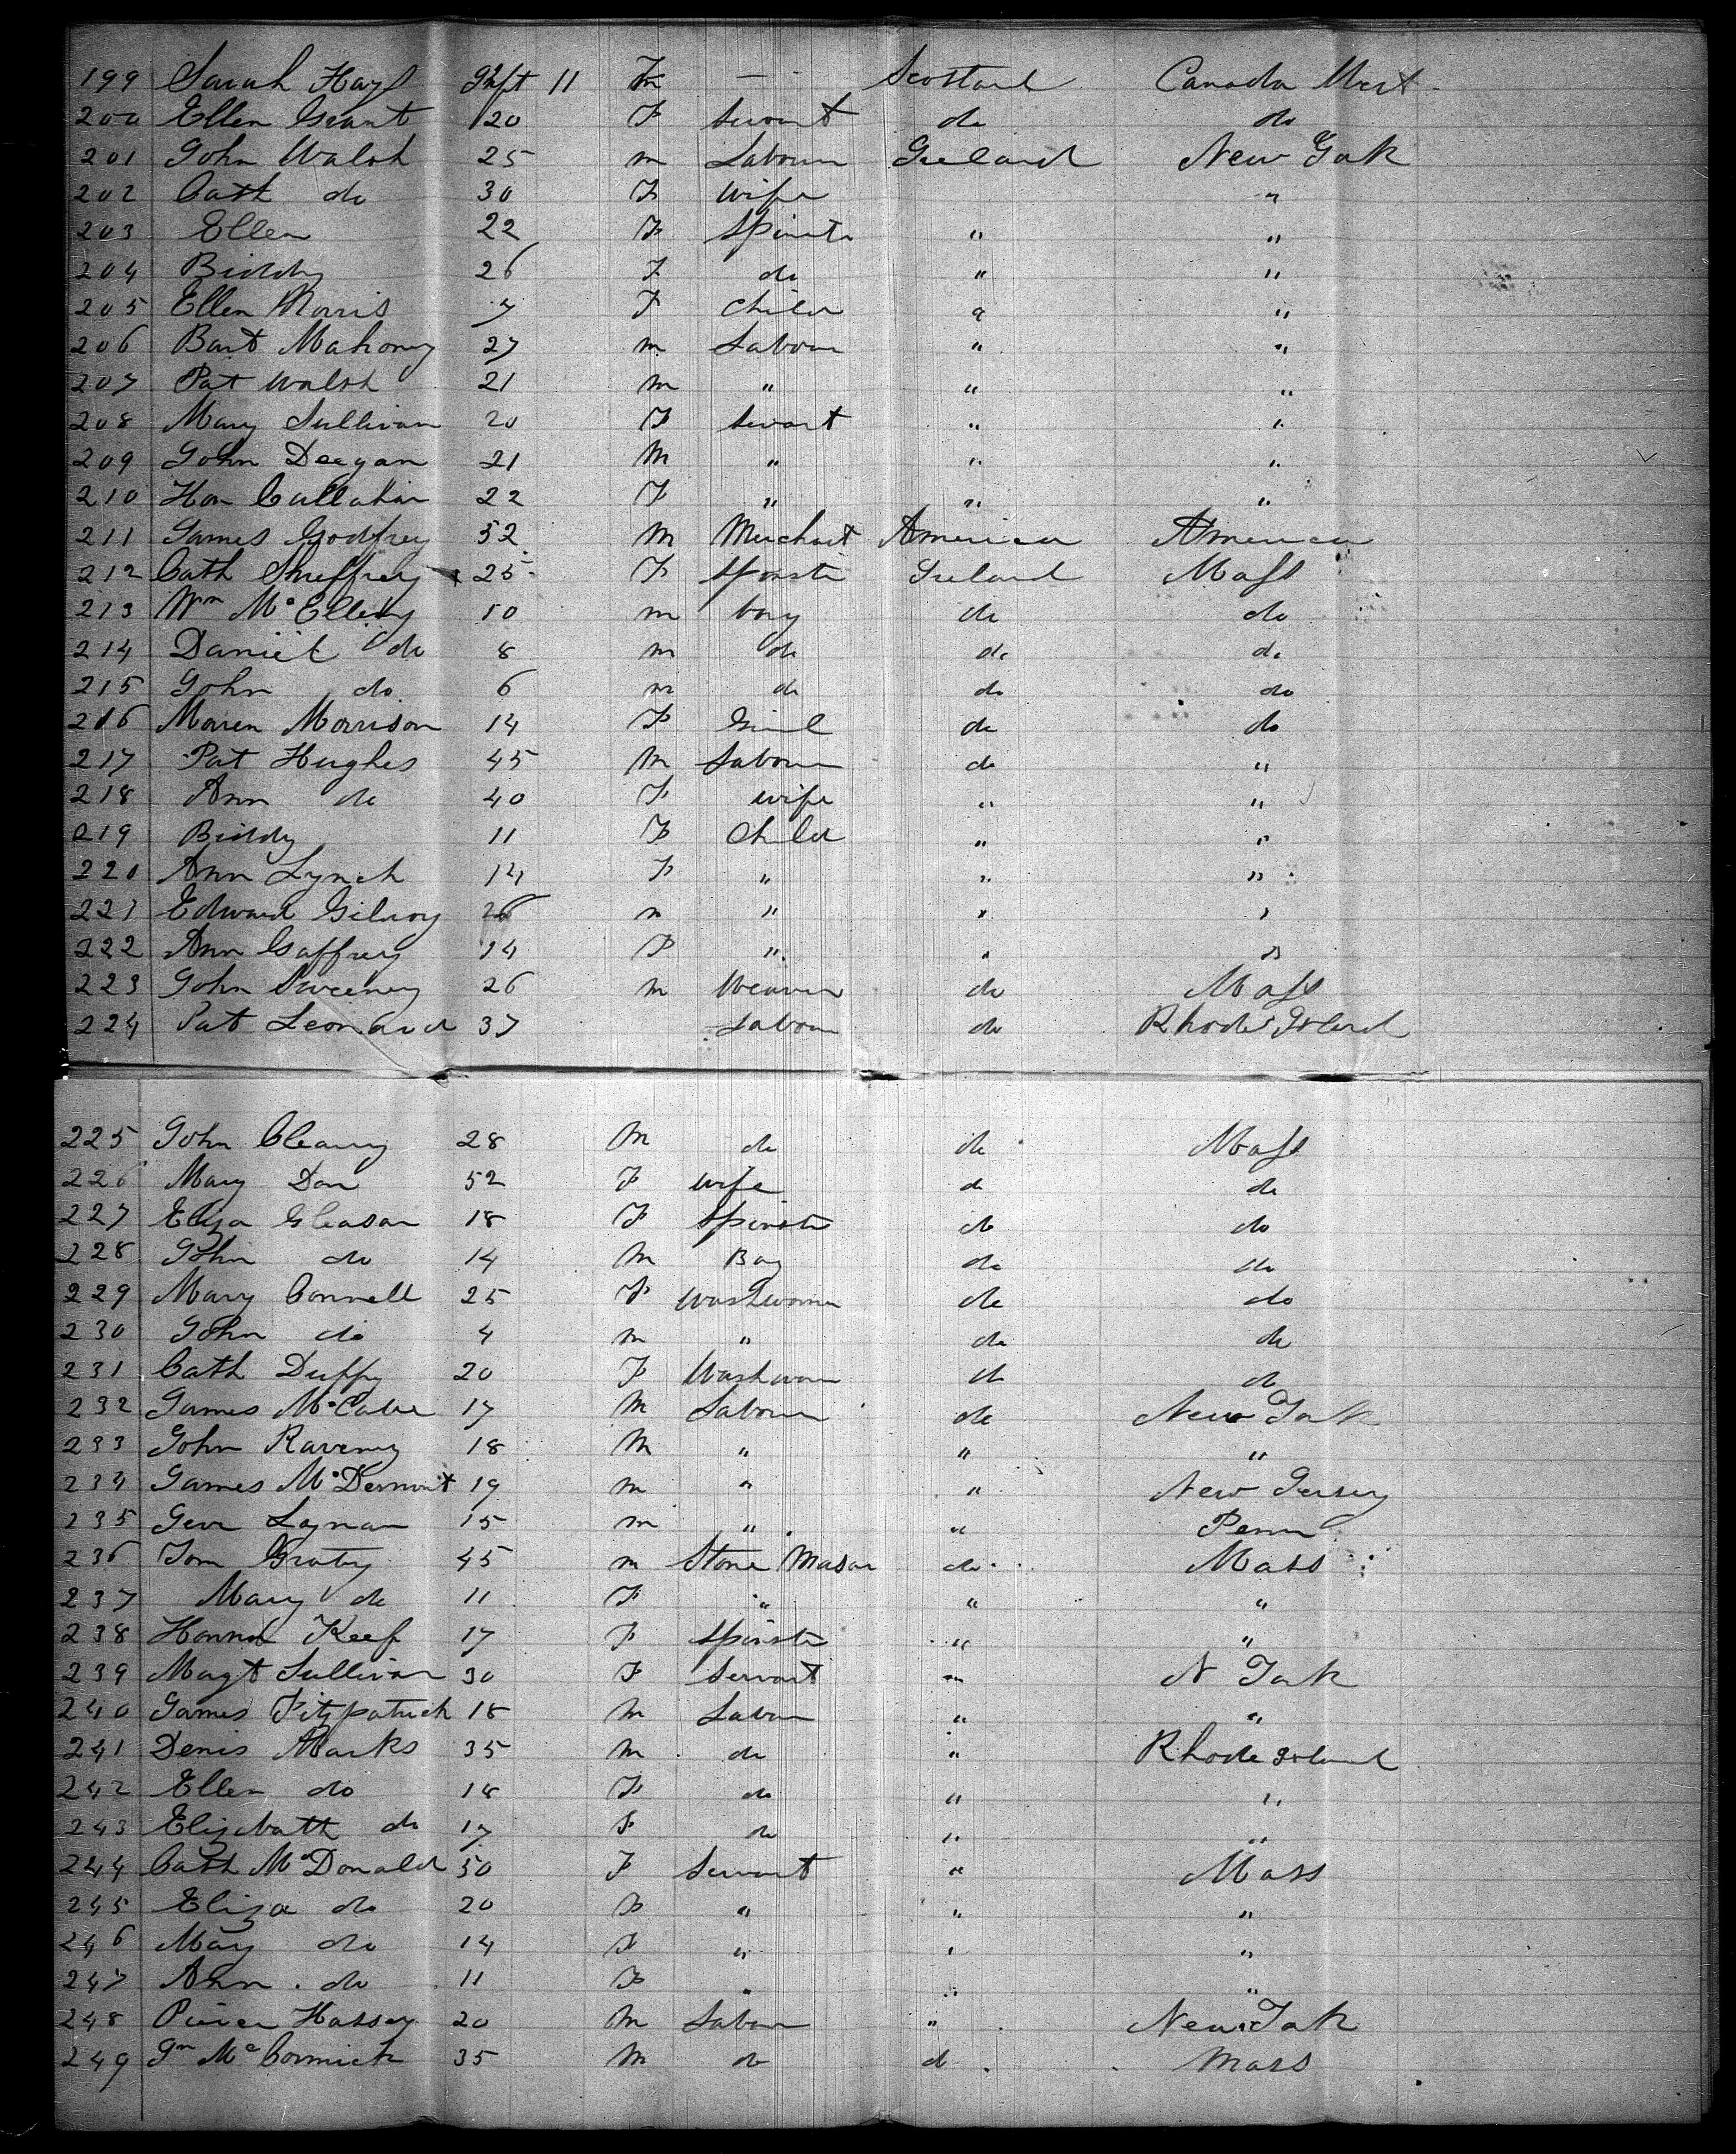 199 Sarah Hays Inft 11 Fm — Scotland Canada West
200 Ellen Grant 20 F Servant do do
201 John Walsh 25 m Labourer Ireland New York
202 Cath do 30 F Wife "
203 Ellen 22 F Spinster " "
204 Biddy 26 F do " "
205 Ellen Morris 7 F Child " "
206 Bart Mahoney 27 m Labour " "
207 Pat Walsh 21 m " " "
208 Mary Sullivan 20 F Servant " "
209 John Deegan 21 M " " "
210 Hon Callahan 22 F " " "
211 James Godfrey 52 M Merchant America America
212 Cath 25 F Spinster Ireland Mass
213 Wm McEllery 10 m boy do do
214 Daniel do 8 m do do do
215 John do 6 m do do do
216 Maren Morrison 14 F Girl do do
217 Pat Hughes 45 M Labour do "
218 Ann do 40 F wife " "
219 Biddy 11 F Child " "
220 Ann Lynch 14 F " " "
221 Edward Gilroy 26 m " " "
222 Ann Gaffrey 14 F " " "
223 John Sweeney 26 m Weaver do Mass
224 Pat Leonard 37 Labour do Rhode Island
225 John Cleary 28 M do do Mass
226 Mary Don 52 F wife do do
227 Eliza Gleason 18 F Spinster do do
228 John do 14 M Boy do do
229 Mary Connell 25 F Washwoman do do
230 John do 4 m " do do
231 Cath Duffy 20 F Washwoman do do
232 James McCabe 17 M Labour do New York
233 John Raveny 18 M " " "
234 James McDermot 19 m " " New Jersey
235 Lynan 15 m " " Penn
236 Tom Graty 45 m Stone Mason do Mass
237 Mary do 11 F " " "
238 Hanna Keef 17 F Spinster " "
239 Magt Sullivan 30 F Servant " N York
240 James Fitzpatrick 18 M Labour " "
241 Denis Marks 35 M do " Rhode Island
242 Ellen do 18 F do " "
243 Elizbath do 17 F do " "
244 Cath McDonald 50 F Servant " Mass
245 Eliza do 20 F " " "
246 Mary do 14 F " " "
247 Ann do 11 F " " "
248 Hassey 20 M Labour " New York
249 Jn McCormick 35 M do d Mass